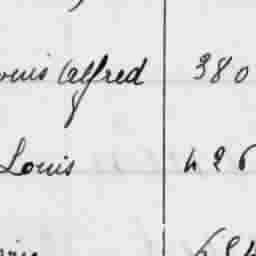 ouis Alfred 380
Louis 426